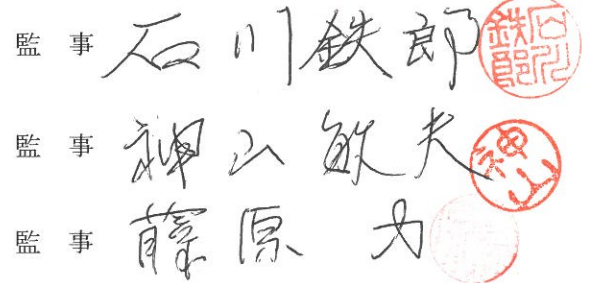 監事 石川鉄郎 石川鉄郎
監事 神山敏夫 神山
監事 藤原力